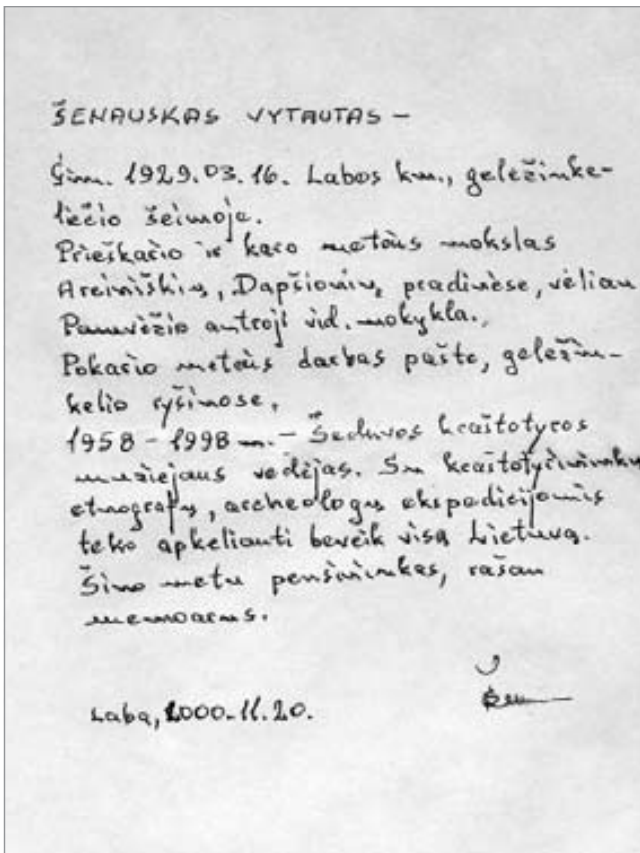 ŠENAUSKAS VYTAUTAS –
Gim. 1929.03.16. Labos km., geležinke-
liečio šeimoje.
Prieškario ir karo metais mokslas
Areiniškių, Dapšionių, pradinėse, vėliau
Panevėžio antroji vid. mokykla.,
Pokario metais darbas pašte, geležin-
kelio ryšiuose,
1958 – 1998 m. – Šeduvos kraštotyros
muziejaus vedėjas. Su kraštotyrininkų
etnografų, archeologų ekspedicijomis
teko apkeliauti beveik visą Lietuvą.
Šiuo metu pensininkas, rašau
memoarus.
Laba, 2000.11.20.